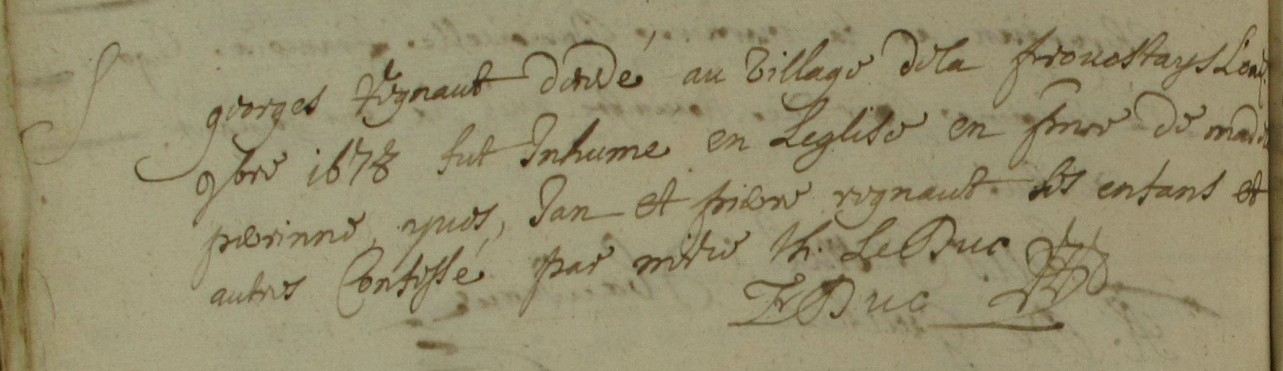 georges Regnaut decede au village de la provostays
9bre 1678 fut Inhume en Leglise en pnce de
perinne, yves, Jan et pierre regnaut ses enfans et
autres Confessé par mire th. Le Duc
Th Le Duc